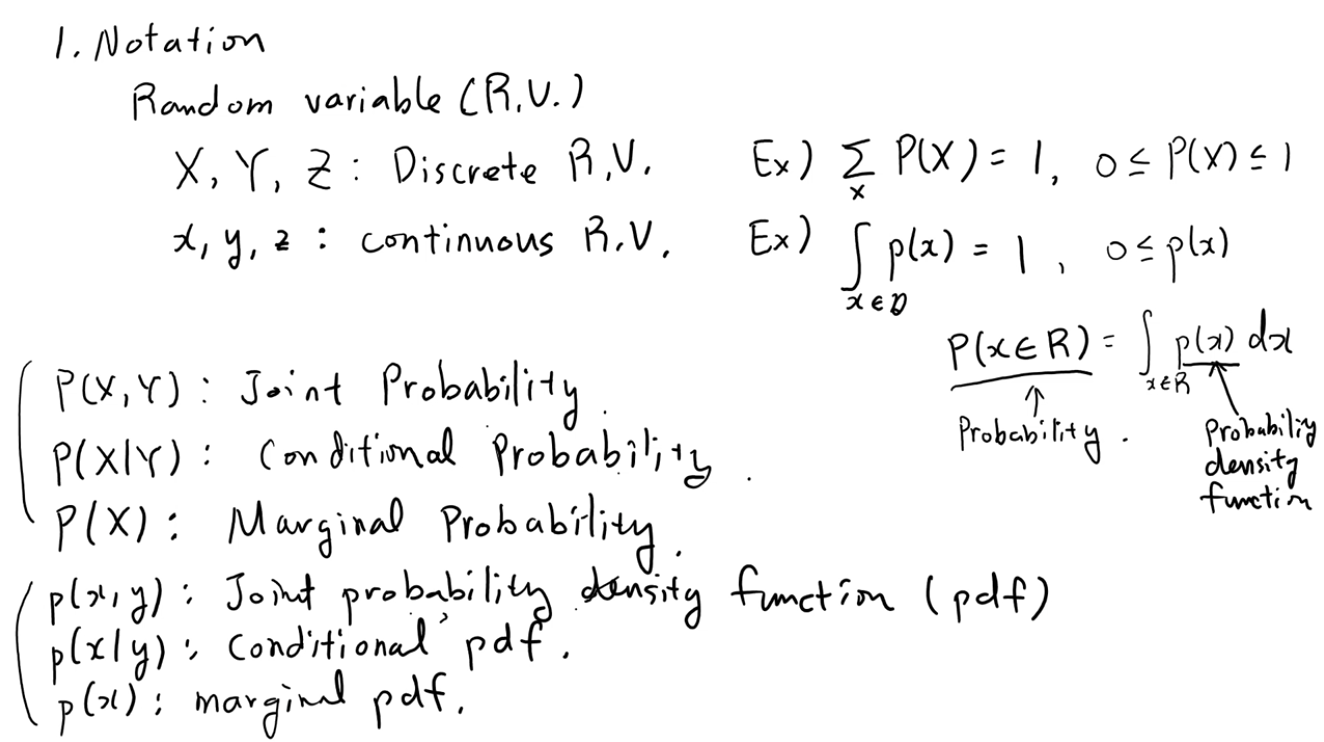 1. Notation
Random variable (R.V.)
X, Y, Z : Discrete R.V. Ex) ∑_X P(X) = 1, 0 ≤ P(X) ≤ 1
x, y, z : continuous R.V. Ex) ∫_{x∈D} p(x) = 1, 0 ≤ p(x)
P(x∈R) = ∫_{x∈R} p(x) dx
↑
Probability.
Probability
density
function
P(X,Y) : Joint Probability.
P(X|Y) : Conditional Probability.
P(X) : Marginal Probability.
p(x,y) : Joint probability density function (pdf)
p(x|y) : Conditional pdf.
p(x) : marginal pdf.